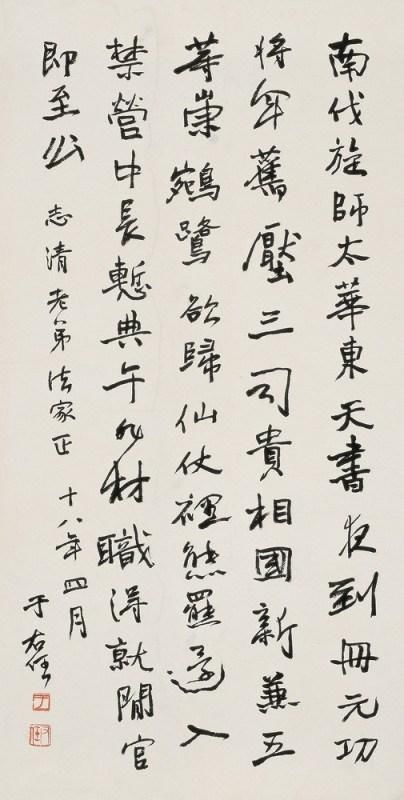 南伐旋師太華東天書夜到冊元功
將軍舊壓三司貴相國新兼五
等崇鵷鷺欲歸仙仗裡熊羆還入
禁營中長慙典午非材職得就閒官
即至公
志清老弟法家正
十八年四月
于右任